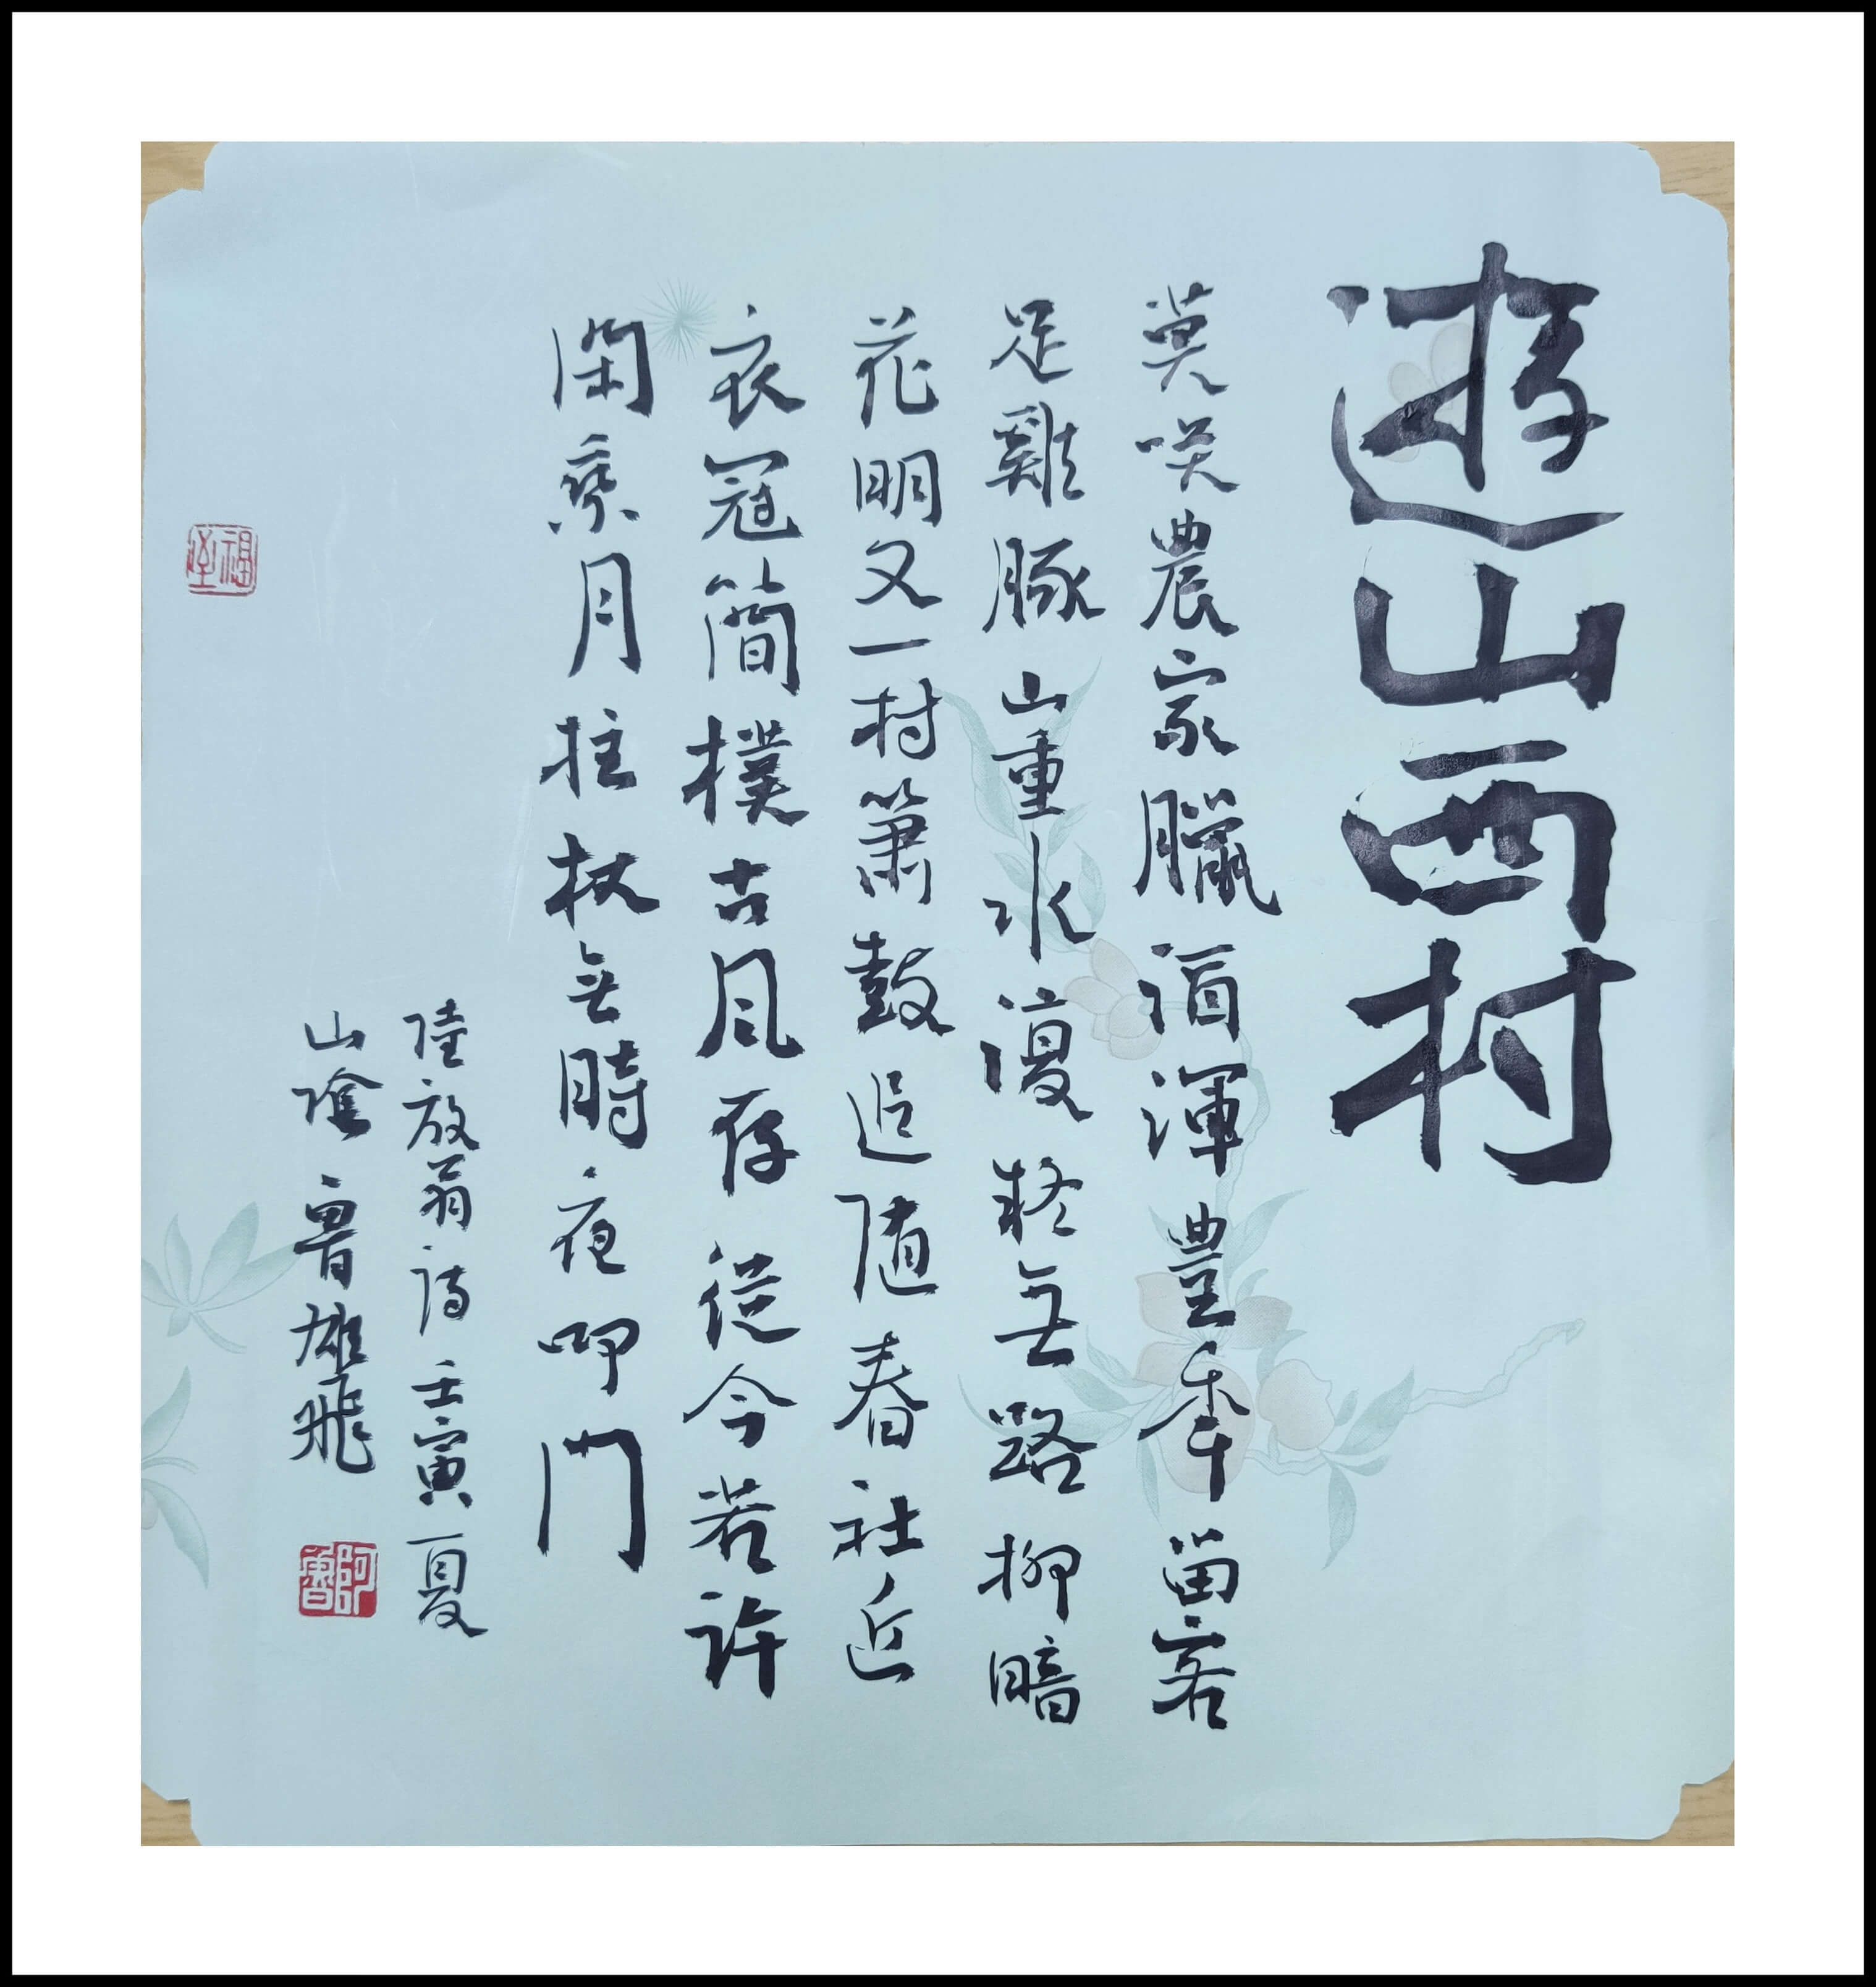 遊山西村
莫咲農家臘酒渾豐年留客
足雞豚山重水複疑無路柳暗
花明又一村簫鼓追隨春社近
衣冠簡樸古風存從今若許
閑乘月拄杖無時夜叩門
陸放翁詩壬寅夏
山陰魯雄飛
阿魯
福至